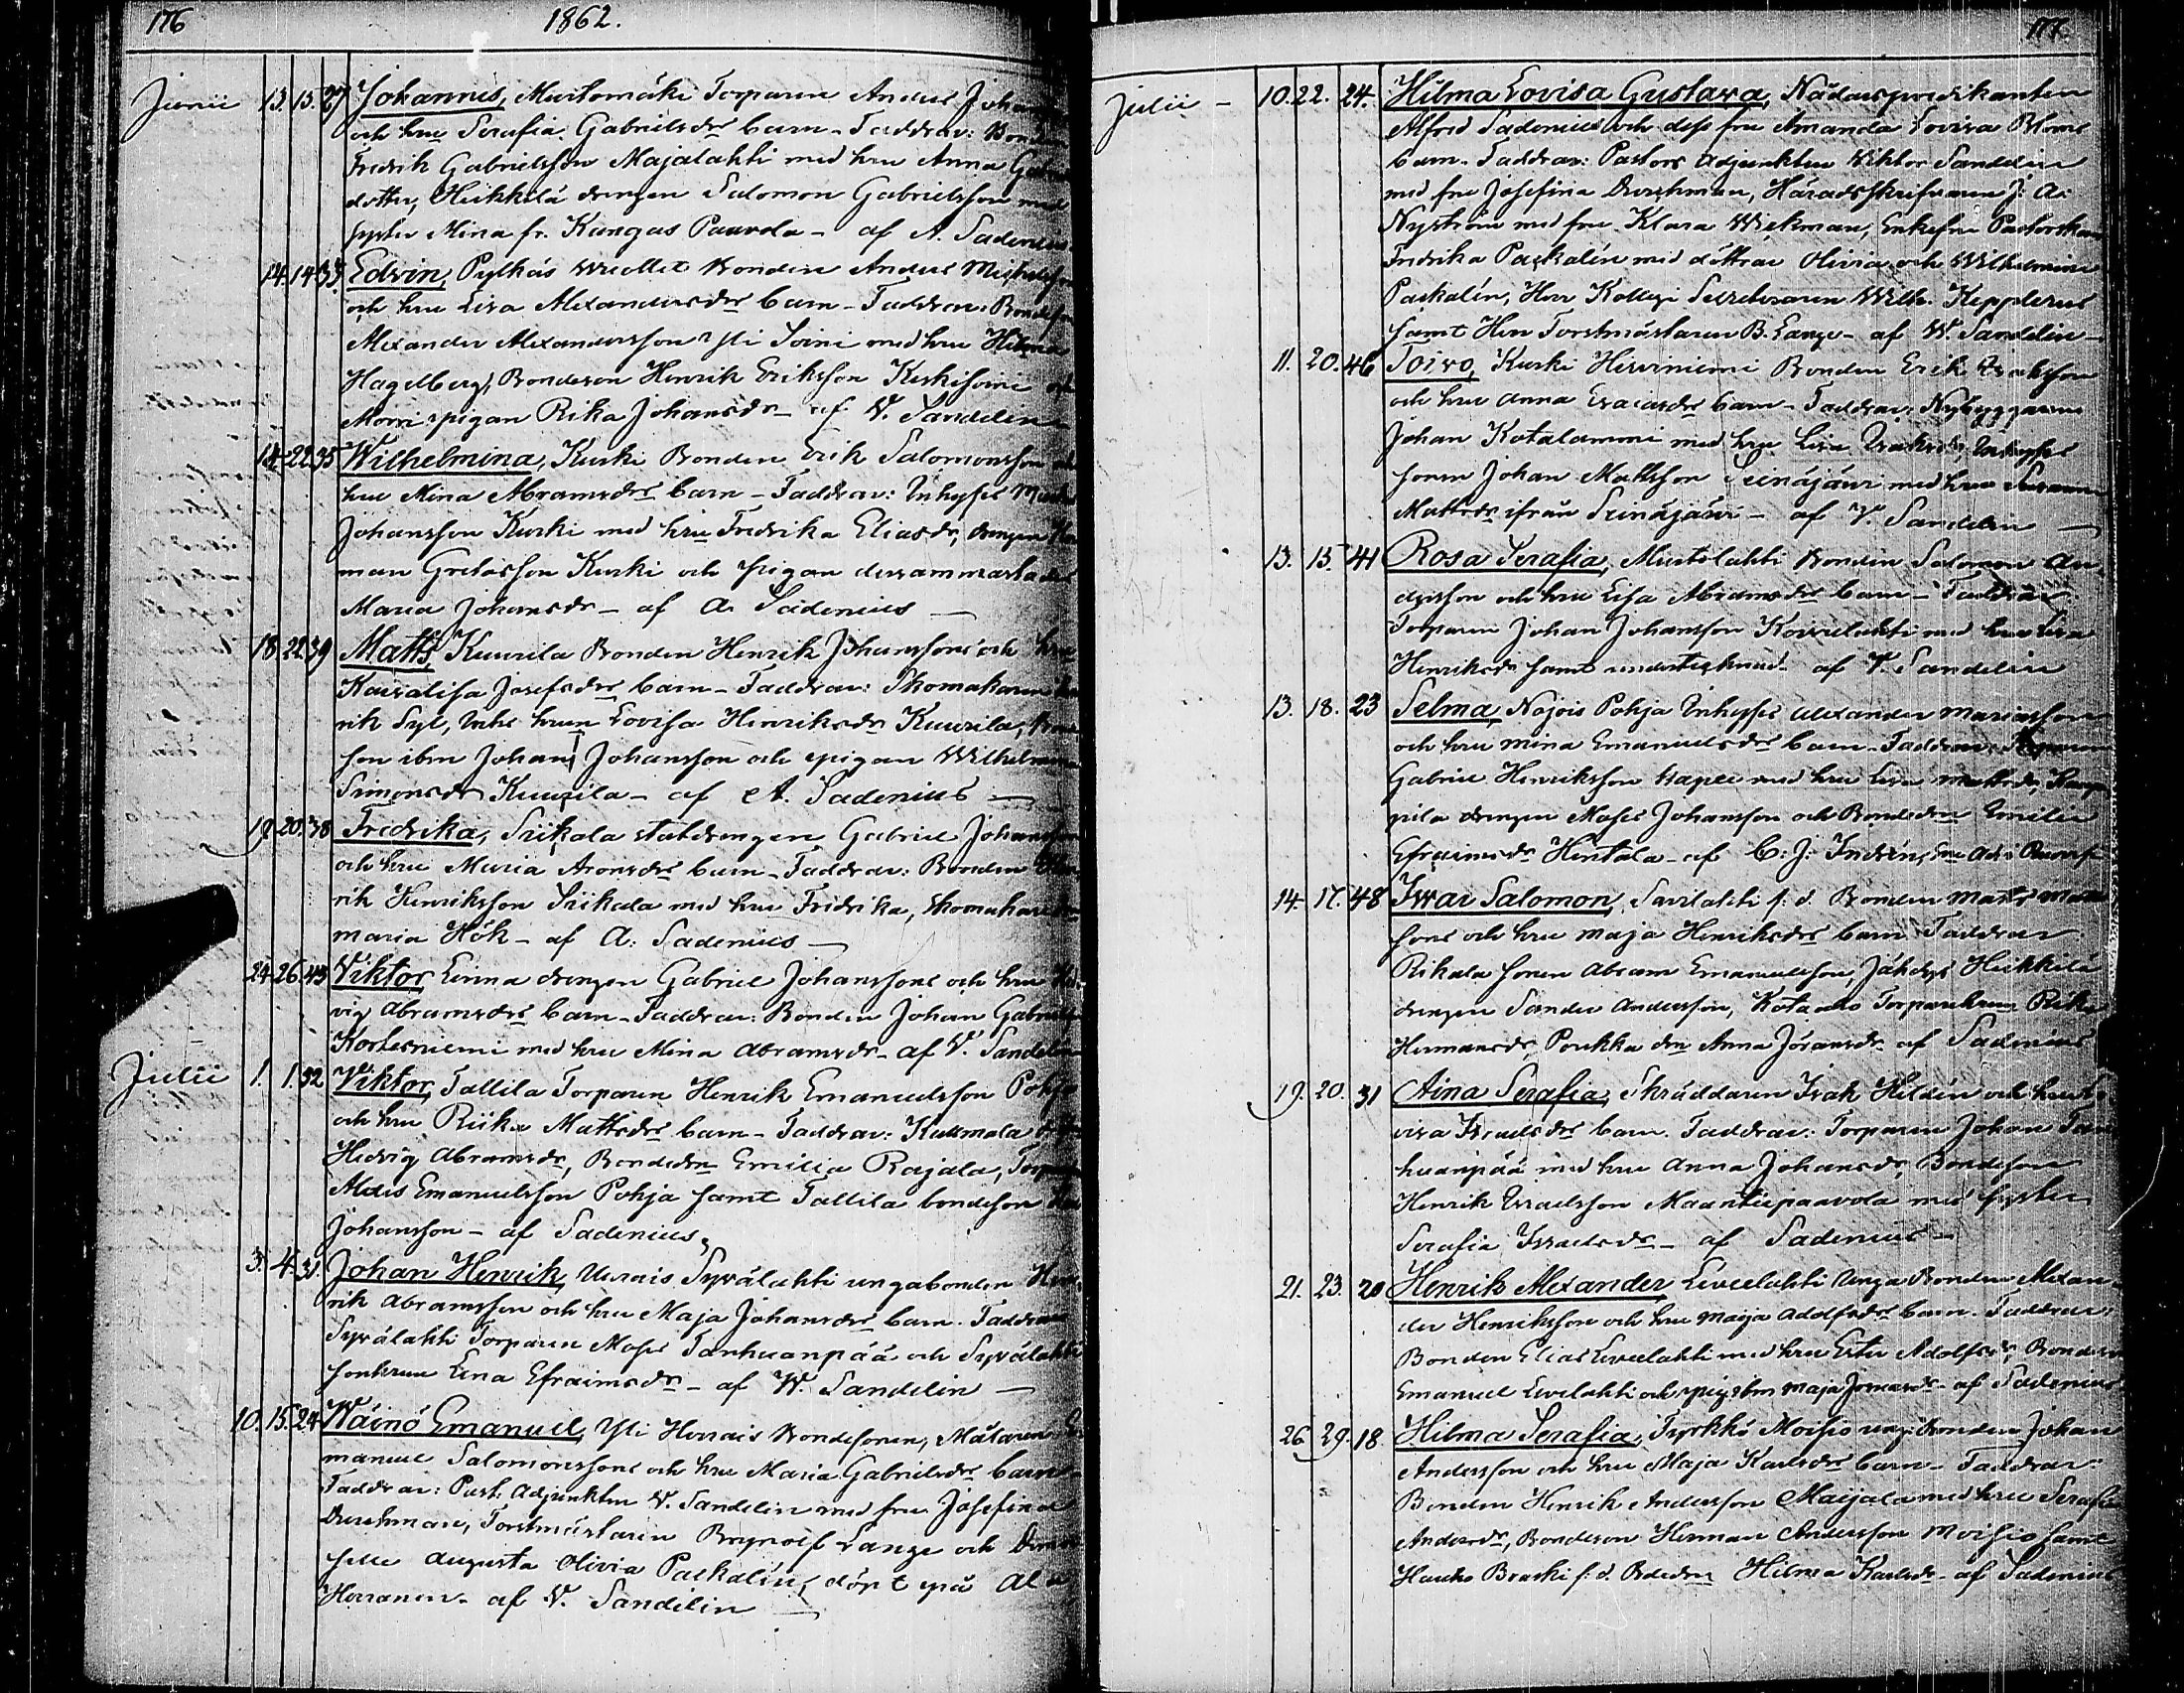 176
1862.
Junii 13. 13. 27 Johannes, Mustomäki Torparen Anders Johan
och hru Serafia Gabrielsdrs barn - Faddrar: Bonden
Fredrik Gabrielsson Majalahti med hru Anna
dotter, Heikkilä drengen Salomon Gabrielsson med
syster Mina fr. Kangas Paavola - af A. Sadenius
14. 14. 33. Edvin, Pylkäs Bonden Anders
och hru Lisa Alexandersdrs barn - Faddrar: Bondeson
Alexander Alexandersson Yli Soini med hru Hilma
Hagelberg, Bondeson Henrik Eriksson Keskisoini och
Morri pigan Rika Johansdr - af V. Sandelin
14. 22. 35 Wilhelmina, Kuski Bonden Erik Salomonsson och
hru Mina Abramsdrs barn - Faddrar: Inhyses
Johansson Kuski med hru Fredrika Eliasdr, drengen
man Gretasson Kuski och pigan dersammastädes
Maria Johansdr - af A. Sadenius -
18. 22. 39 Matts, Kuurila Bonden Henrik Johanssons och hru
Kaisalisa Josefsdrs barn - Faddrar: Skomakaren
rik Syl, Inhs hrun Lovisa Henriksdr Kuurila,
son ibm Johan Johansson och pigan Wilhelmina
Simonsdr Kuurila - af A. Sadenius -
19. 20. 38 Fredrika, Siikala statdrengen Gabriel Johansson
och hru Maria Aronsdrs barn - Faddrar: Bonden
rik Henriksson Siikala med hru Fridrika,
Maria Hök - af A. Sadenius -
24. 26. 43 Viktor Linna drengen Gabriel Johanssons och hru
vig Abramsdrs barn - Faddrar: Bonden Johan
Kortesniemi med hru Mina Abramsdr - af V. Sandelin
Julii 1. 1. 32 Viktor, Tallila Torparen Henrik Emanuelsson Pohja
och hru Riika Mattsdrs barn - Faddrar: Kullmala
Hedvig Abramsdr, Bondedrn Emilia Rajala,
Alexis Emanuelsson Pohja samt Tallila bondeson
Johansson - af Sadenius
3. 4. 31. Johan Henrik, Uurais Syvälahti ungabonden Hen
rik Abramsson och hru Maja Johansdrs barn - Faddrar
Syvälahti Torparen Moses Tanhuanpää och Syvälahti
sonhrun Lina Efraimsdr - af W. Sandelin -
10. 15. 24 Wäinö Emanuel, Yli Horrais Bondesonen, Målaren
manuel Salomonssons och hru Maria Gabrielsdrs barn
Faddrar: Past. Adjunkten V. Sandelin med fru Josefina
Durchman, Forstmästaren Brynolf Lange och
selle Augusta Olivia Paskalin, döpt på
Horranen - af V. Sandelin -
177.
Julii - 10. 22. 24. Hilma Lovisa Gustava, Nådårspredikanten
Alfred Sadenius och dess fru Amanda Lovisa
barn - Faddrar: Pastors Adjunkten Viktor Sandelin
med fru Josefina Durchman, Häradsskrifvaren J. A.
Nyström med fru Klara Wickman, Enkefru Pastorskan
Fredrika Paskalin med döttrar Olivia och Wilhelmina
Paskalin, Herr Kollegi Sekreteraren Wilh. Kepplerus
samt Herr Forstmästaren B. Lange - af W. Sandelin -
11. 20. 46 Toivo, Kuski Hirviniemi Bonden Erik
och hru Anna Esaiasdrs barn - Faddrar: Nybyggaren
Johan Katalammi med hru Lisa
sonen Johan Mattsson Seinäjäwi med hru Susanna
Mattsdr ifrån Seinäjäwi - af V. Sandelin -
13. 15. 41 Rosa Serafia, Mustolahti Bonden Salomon An-
dersson och hru Lisa Abramsdrs barn - Faddrar
Torparen Johan Johansson Koivulahti med hru Lisa
Henriksdr samt undertecknad - af V. Sandelin
13. 18. 23 Selma, Nojois Pohja Inhyses Alexander Mariasson
och hru Mina Emanuelsdrs barn - Faddrar:
Gabriel Henriksson med hru Lisa Mattsdr,
pila drengen Moses Johansson och Bondedrn Emilia
Efraimsdr Hintala - af C. J. Indrén,
14. 17. 48 Iwar Salomon, Savilahti s. d. Bonden Matts
sons och hru Maja Henriksdrs barn Faddrar
Rikala sonen Abram Emanuelsson, Heikkilä
drengen Sander Andersson, Torparehrun Rika
Hermansdr, Poukka drn Anna Göransdr af Sadenius
19. 20. 31 Aina Serafia, Skräddaren Isak Hildén och hru
visa Israelsdrs barn. Faddrar: Torparen Johan Tan
huanpää med hru Anna Johansdr, Bondeson
Henrik Israelsson Maantiepaavola med syster
Serafia Israelsdr - af Sadenius -
21. 23. 20 Henrik Alexander Liveelahti Unga Bonden Alexan-
der Henriksson och hru Maija Adolfsdrs barn - Faddrar:
Bonden Elias Liveelahti med hru Ester Adolfsdr,
Emanuel Livelahti och pig. ibm Maja - af Sadenius
26. 29. 18 Hilma Serafia, Tyrkkö Moisio unga Bonden Johan
Andersson och hru Maja Karlsdrs barn - Faddrar.
Bonden Henrik Andersson Maijala med hru Serafia
Andersdr, Bondeson Herman Andersson Moisio samt
Hauko Braski s. d. Hilma Karlsdr - af Sadenius